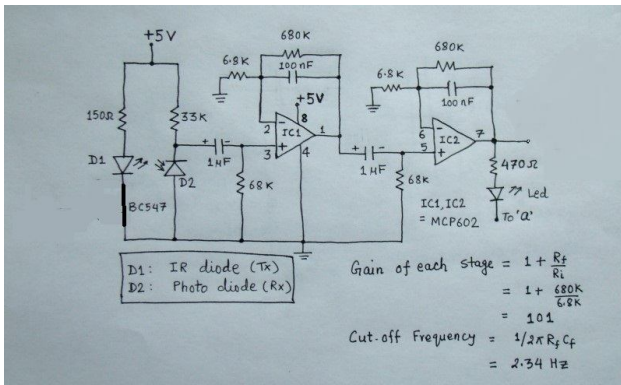 +5V
680K
6.8K
100nF
+5V
8
150Ω
33K
2
-
IC1
1
3
+
4
+
-
1µF
D1
D2
68K
BC547
680K
6.8K
100nF
6
-
IC2
7
5
+
+
-
1µF
68K
470Ω
Led
To 'a'
IC1, IC2
= MCP602
D1: IR diode (Tx)
D2: Photo diode (Rx)
Gain of each stage = 1 + Rf/Ri
= 1 + 680K/6.8K
= 101
Cut-off Frequency = 1/2πRfCf
= 2.34 Hz